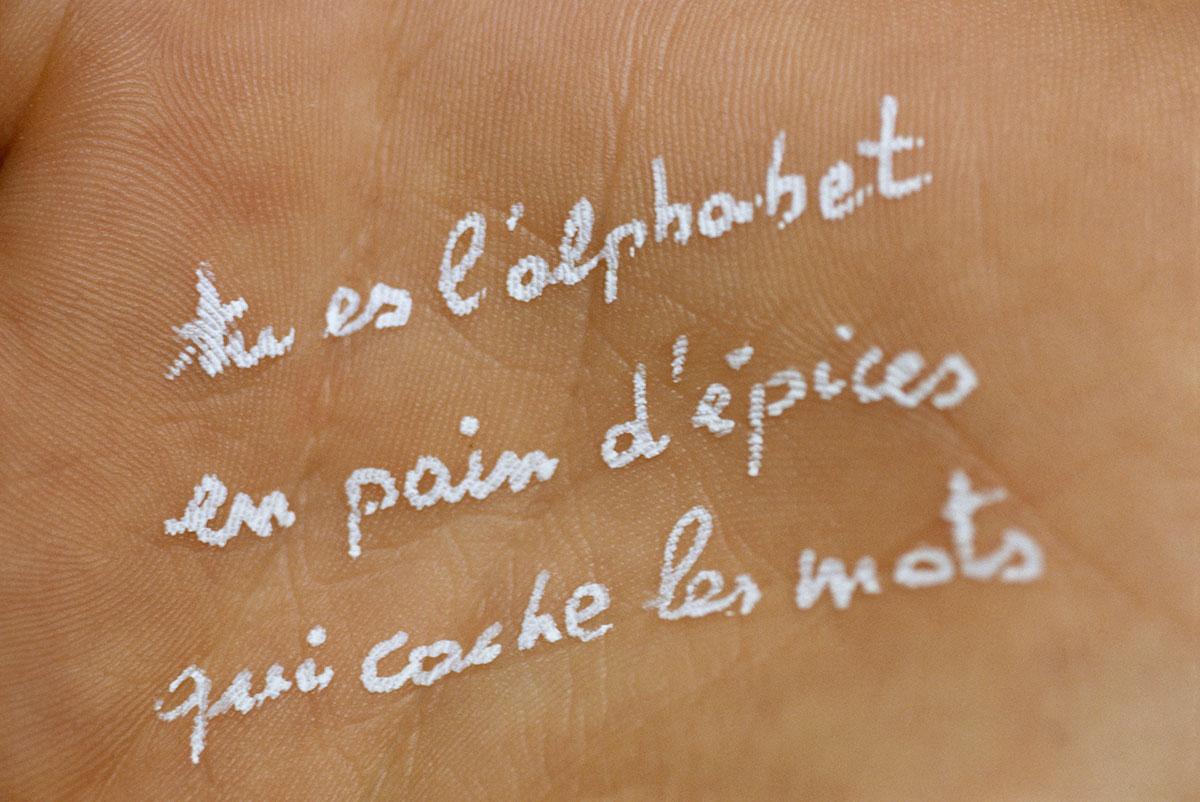 tu es l'alphabet
en pain d'épices
qui cache les mots